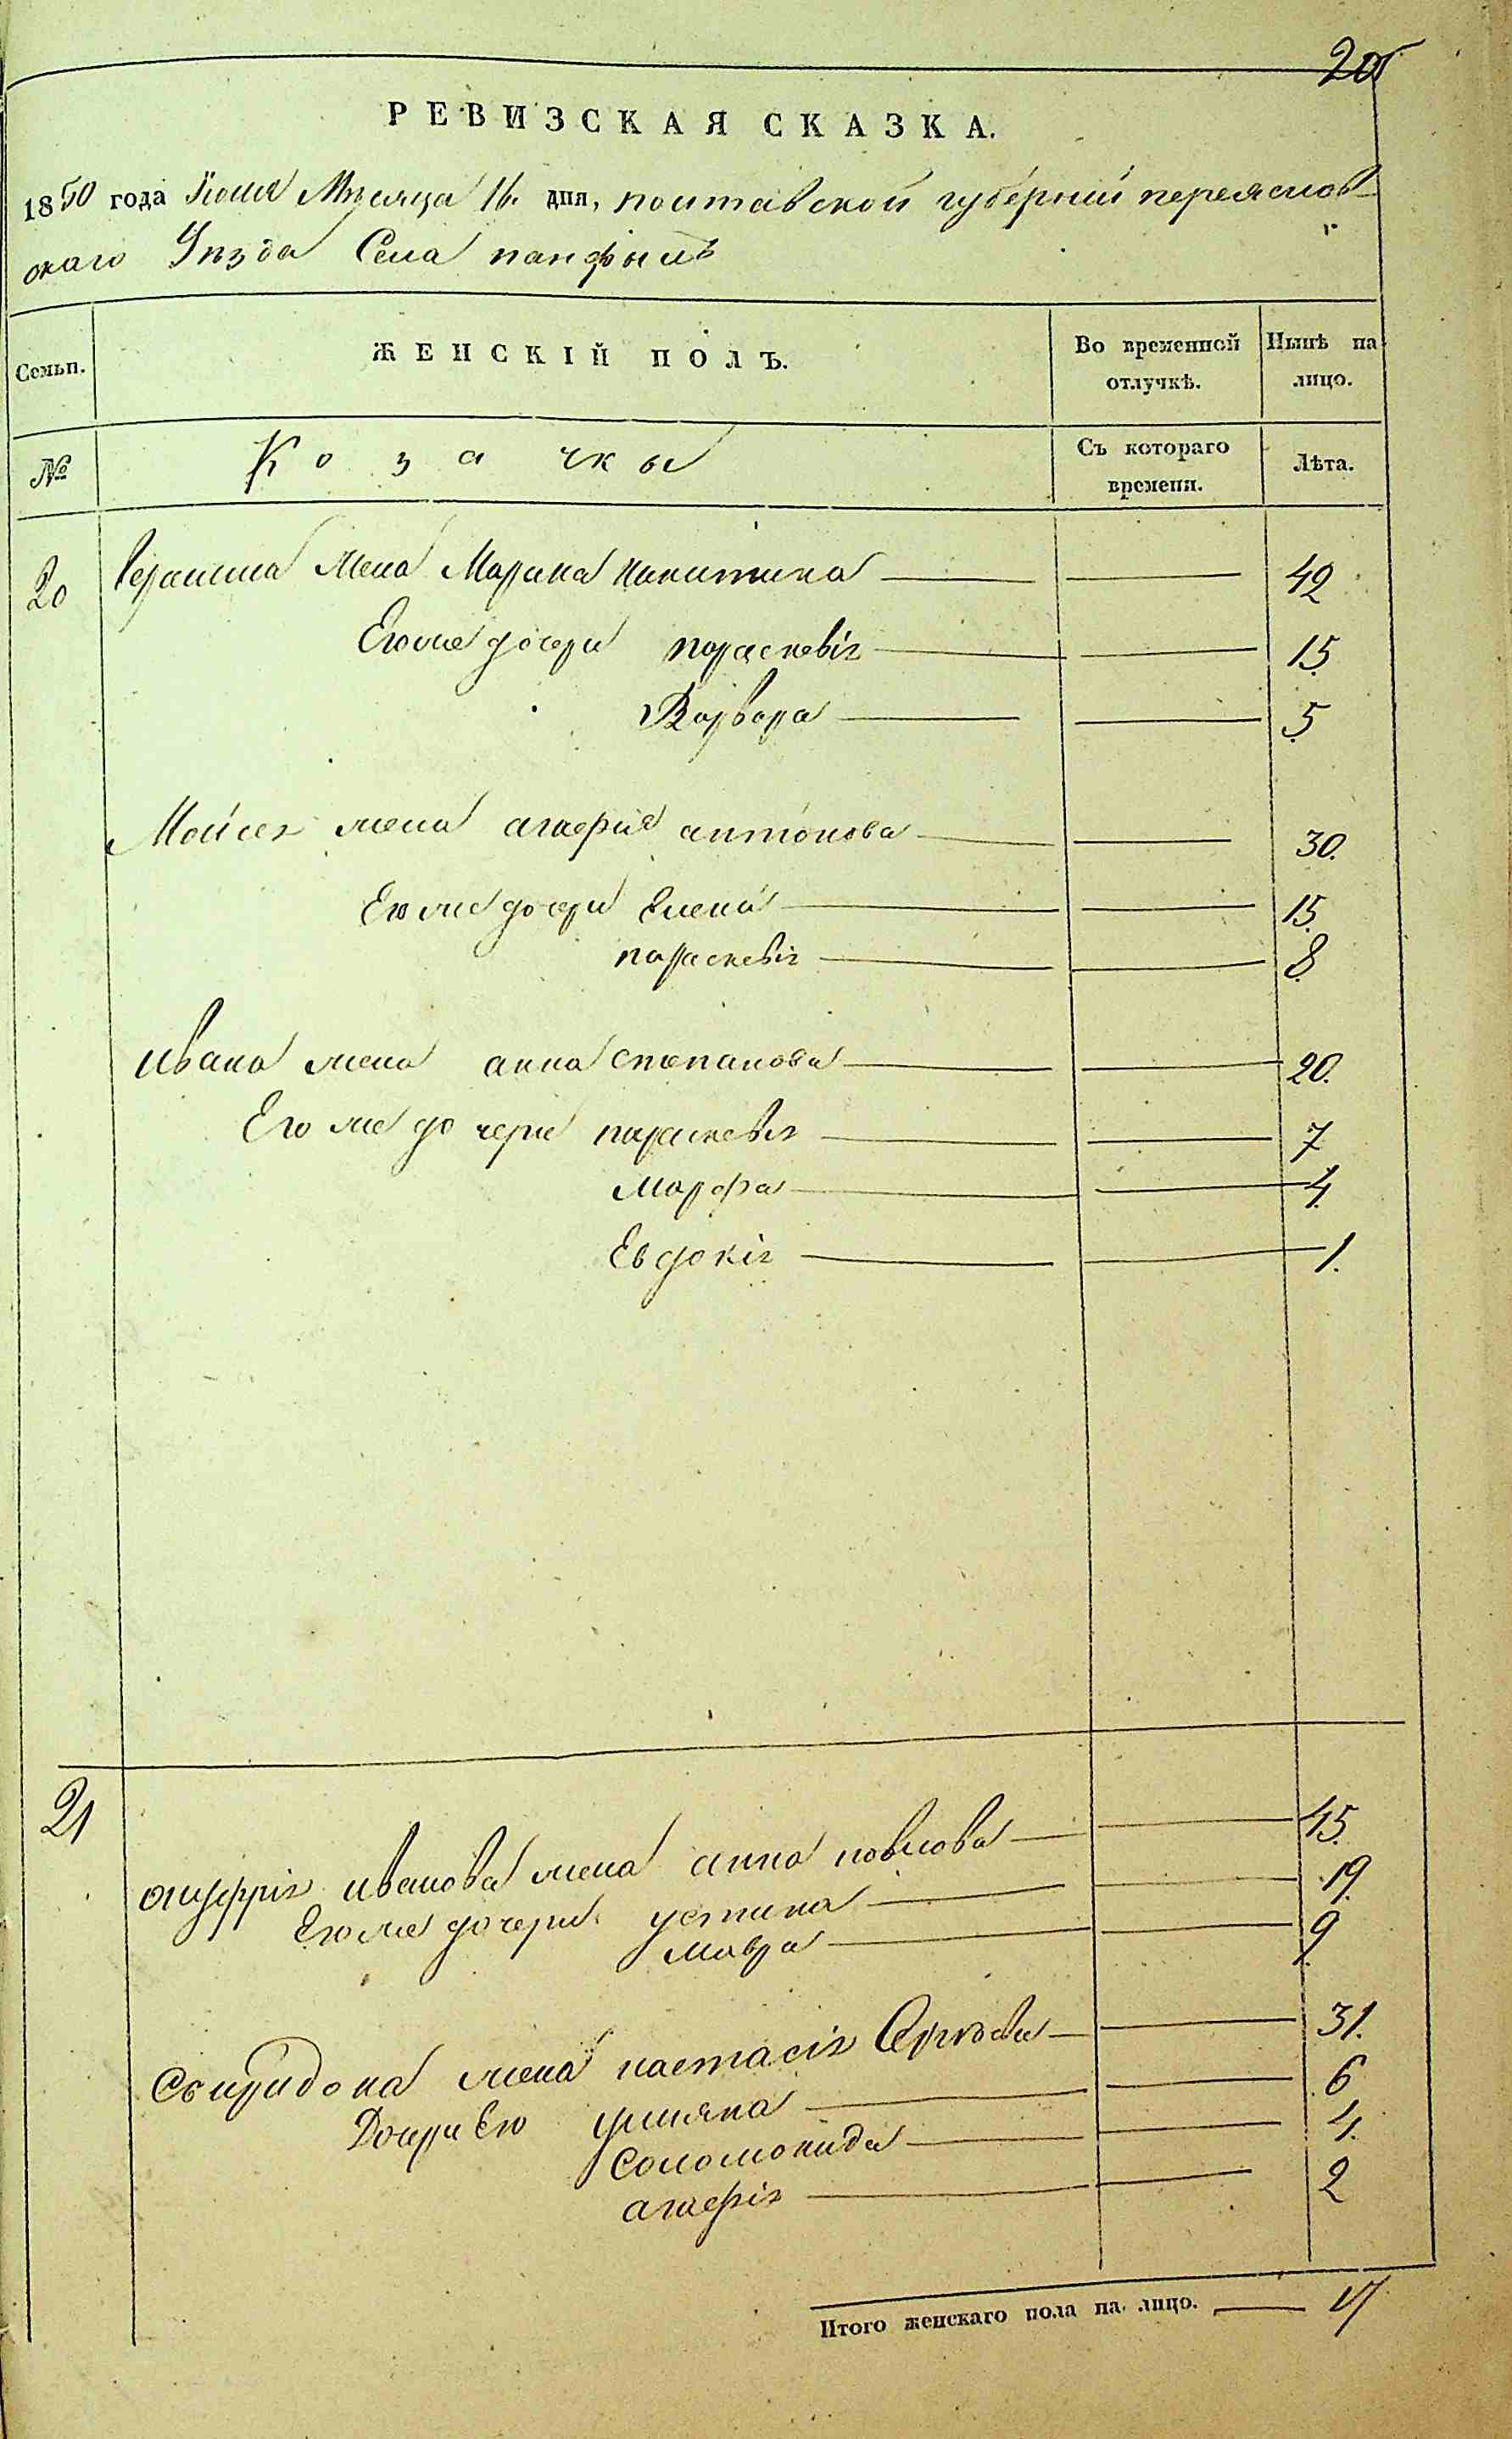 205
РЕВИЗСКАЯ СКАЗКА.
1850 года Июня Мѣсяца 16. дня, полтавской губерній переяслов-
скаго Уѣзда Села панфилъ
Семьи. ЖЕНСКІЙ ПОЛЪ. Во временной отлучкѣ. Нынѣ на лицо.
№ Козачкы Съ котораго времени. Лѣта.
20 жена Марина никитина 42
Его же дочери параскевія 15
Варвара 5
Мойсея жена агафия антонова 30.
Его же дочери Елена 15.
параскевія 8
Ивана жена анна степанова 20.
Его же дочери параскевія 7
Марфа 4.
Евдокія 1.
21
онуфрія иванова жена анна павлова 45.
Его же дочери устина 19.
мавра 9
Свиридона жена настасія 31.
Дочери Его улияна 6
Соломонида 4.
агафія 2
Итого женскаго пола на лицо. 17